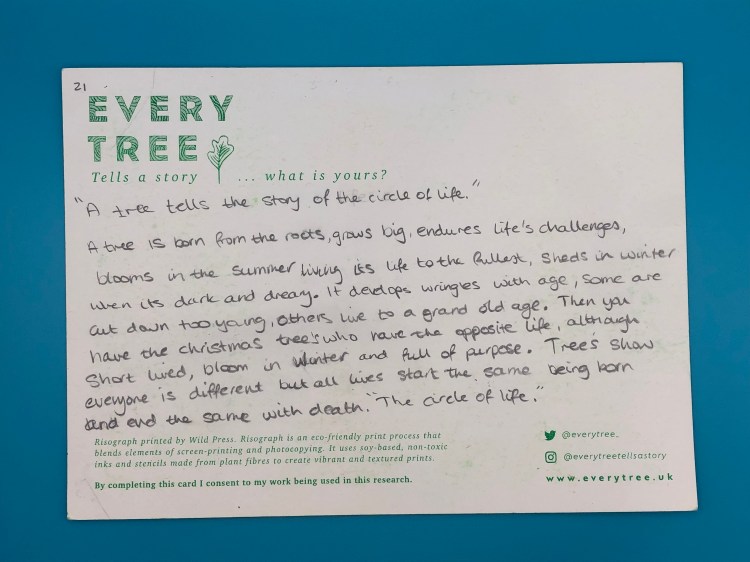 21
EVERY
TREE
Tells a story ... what is yours?
"A tree tells the story of the circle of life."
A tree is born from the roots, grows big, endures life's challenges,
blooms in the summer living its life to the fullest, sheds in winter
when its dark and dreary. It develops wringles with age, some are
cut down too young, others live to a grand old age. Then you
have the christmas tree's who have the opposite life, although
short lived, bloom in winter and full of purpose. Tree's show
everyone is different but all lives start the same being born
and end the same with death. "The circle of life."
Risograph printed by Wild Press. Risograph is an eco-friendly print process that
blends elements of screen-printing and photocopying. It uses soy-based, non-toxic
inks and stencils made from plant fibres to create vibrant and textured prints.
By completing this card I consent to my work being used in this research.
@everytree_
@everytreetellsastory
www.everytree.uk